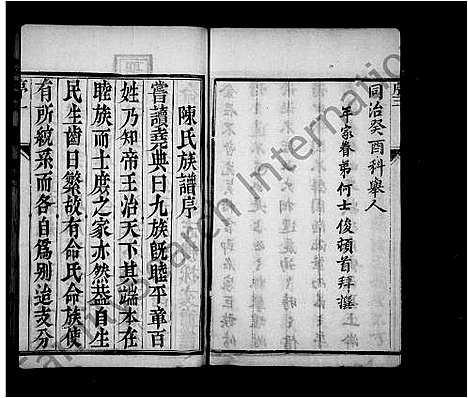 序三
同治癸酉科舉人
年家眷弟何士俊頓首拜撰
陳氏族譜序
嘗讀堯典曰九族既睦平章百
姓乃知帝王治天下其端本在
睦族而士庶之家亦然蓋自生
民生齒日繁故有命氏命族使
有所統系而各自為別迨支分
序一